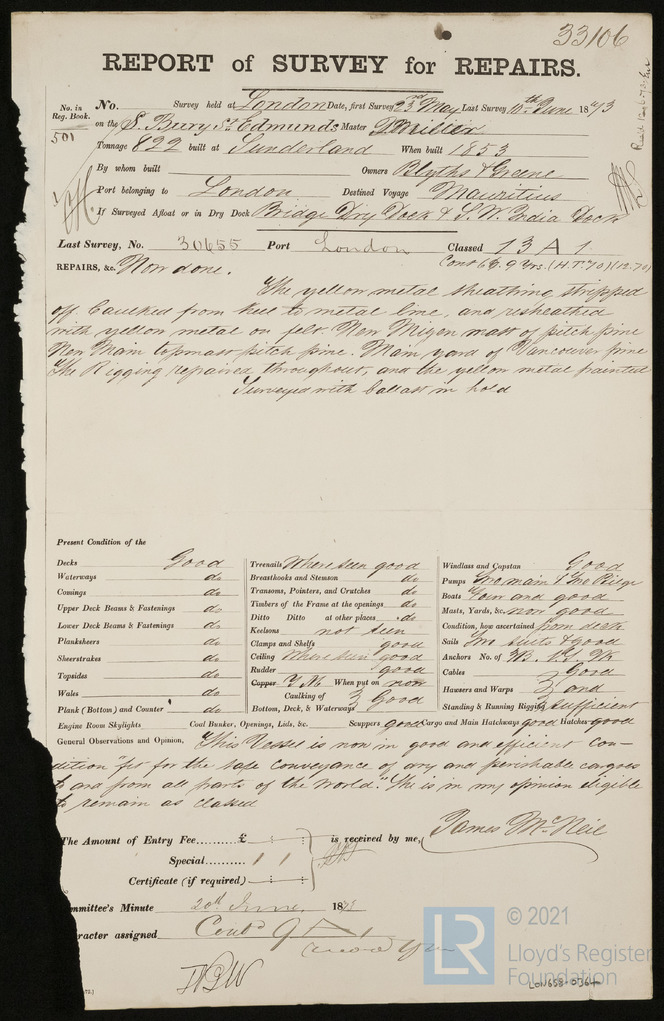 33106
REPORT of SURVEY for REPAIRS.
No. in Reg. Book. No. Survey held at London Date, first Survey 23rd May Last Survey 10th June 1873
501 on the S. Bury St Edmunds Master
Tonnage 822 built at Sunderland When built 1853
By whom built Owners Blyths & Greene
Port belonging to London Destined Voyage Mauritius
If Surveyed Afloat or in Dry Dock Bridge Dry Dock & S. W. India Dock
Last Survey, No. 30655 Port London Classed 13 A 1
Contd 68. 9 Yrs. (H.T.70) (12.70)
REPAIRS, &c. Now done.
The yellow metal sheathing stripped
off. Caulked from keel to metal line, and resheathed
with yellow metal on felt. New Mizen mast of pitch pine
New Main topmast pitch pine. Main yard of Vancouver pine
The Rigging repaired throughout, and the yellow metal painted
Surveyed with ballast in hold
Present Condition of the
Decks Good
Waterways do
Comings do
Upper Deck Beams & Fastenings do
Lower Deck Beams & Fastenings do
Planksheers do
Sheerstrakes do
Topsides do
Wales do
Plank (Bottom) and Counter do
Engine Room Skylights
Treenails Where seen good
Breasthooks and Stemson do
Transoms, Pointers, and Crutches do
Timbers of the Frame at the openings do
Ditto Ditto at other places do
Keelsons not seen
Clamps and Shelfs good
Ceiling Where seen good
Rudder good
Copper Y.M. When put on now
Caulking of Bottom, Deck, & Waterways } Good
Coal Bunker, Openings, Lids, &c.
Windlass and Capstan Good
Pumps
Boats Four and good
Masts, Yards, &c. now good
Condition, how ascertained from deck
Sails Two suits & good
Anchors No. of
Cables } Good
Hawsers and Warps } and
Standing & Running Rigging } sufficient
Scuppers good Cargo and Main Hatchways good Hatches good
General Observations and Opinion, This Vessel is now in good and efficient con-
dition "fit for the safe conveyance of dry and perishable cargoes
to and from all parts of the world." She is in my opinion eligible
to remain as classed
James McNeil
The Amount of Entry Fee..........£ : : } is received by me,
Special.......... 1 1
Certificate (if required) : :
ommittee's Minute 20th June, 1873
racter assigned Contd 9 A 1
72.)
© 2021
LR Lloyd's Register
Foundation
LON658-0364